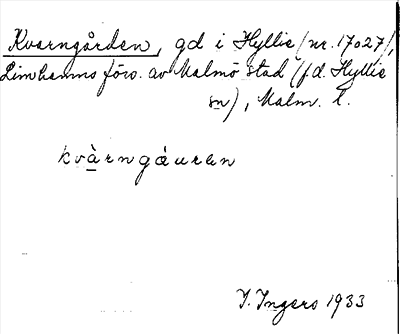 Kvarngården, gd i Hyllie (nr. 17027),
Limhamns förs. av Malmö stad (f.d. Hyllie
sn), Malm. l.
kvàrngá͕urən
I. Ingers 1933